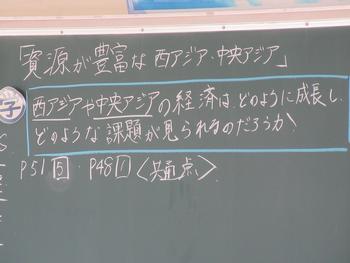 「資源が豊富な 西アジア・中央アジア」
西アジアや中央アジアの経済は、どのように成長し、
どのような課題が見られるのだろうか
P51 5 P48 1 〈共通点〉
子